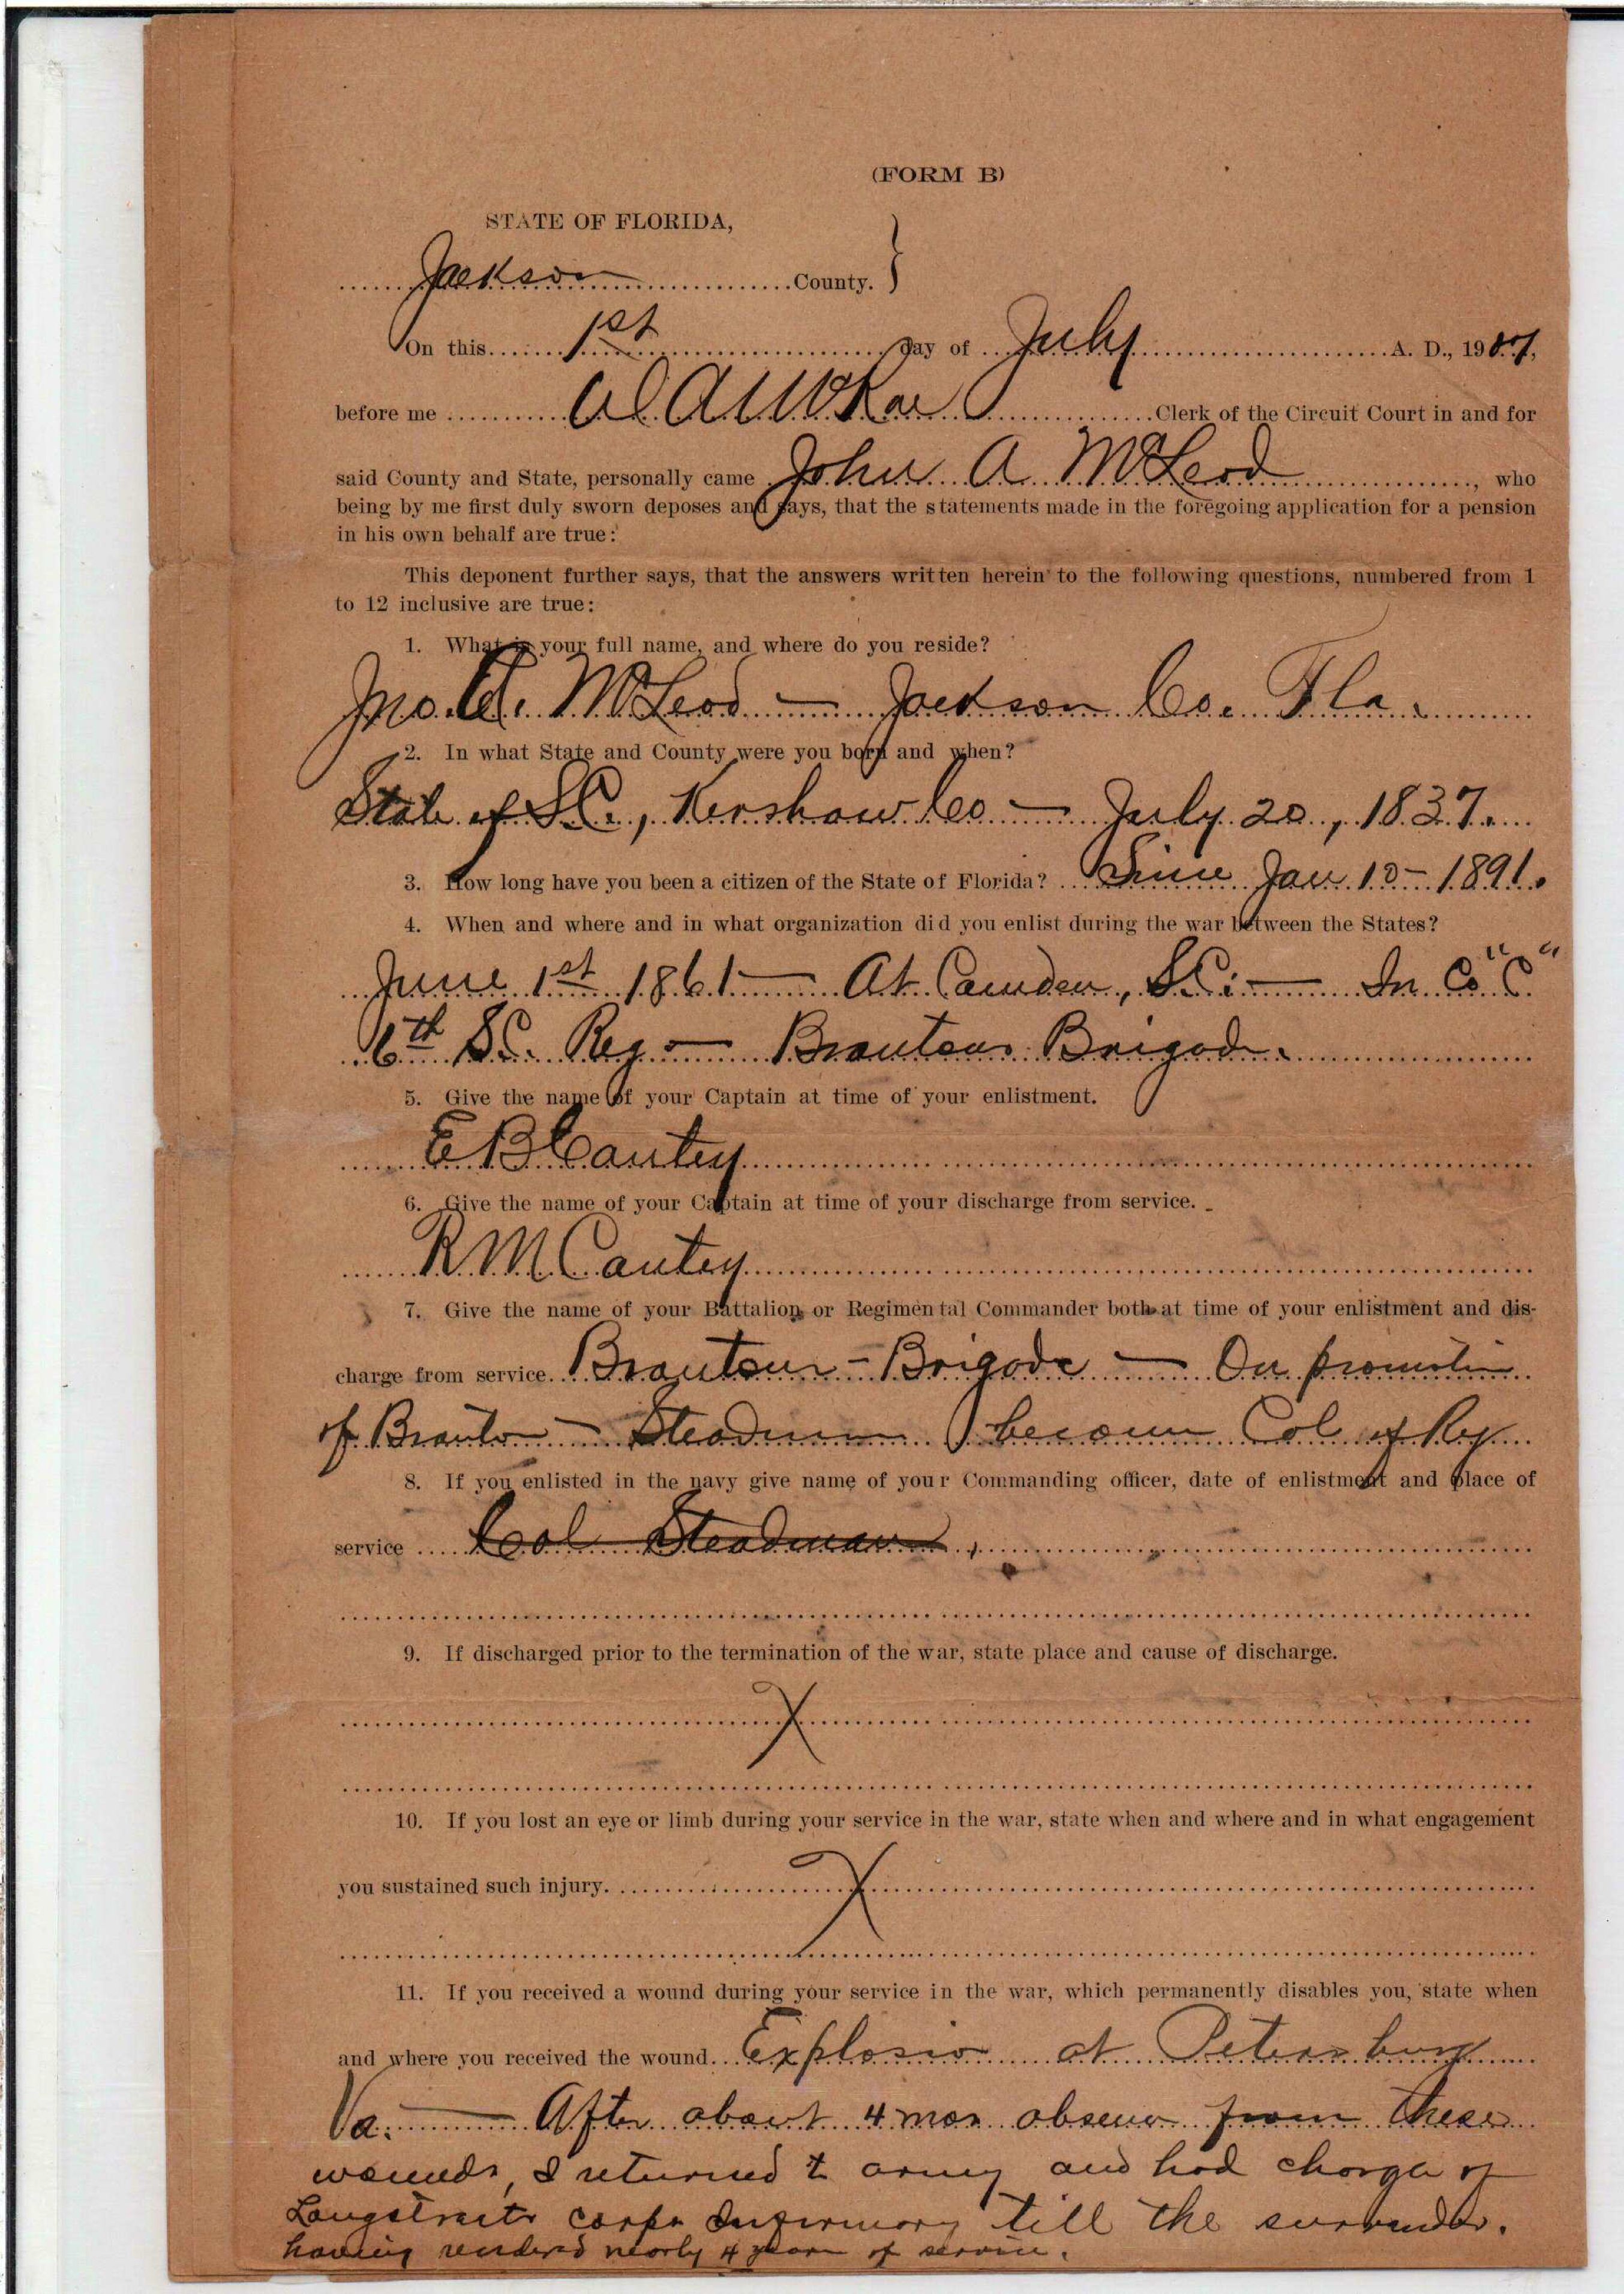 (FORM B)
STATE OF FLORIDA,
Jackson County.
On this 1st day of July A. D., 1907,
before me Clerk of the Circuit Court in and for
said County and State, personally came John A McLeod, who
being by me first duly sworn deposes and says, that the statements made in the foregoing application for a pension
in his own behalf are true:
This deponent further says, that the answers written herein to the following questions, numbered from 1
to 12 inclusive are true:
1. What is your full name, and where do you reside?
Jno. A. McLeod — Jackson Co. Fla.
2. In what State and County were you born and when?
State of S.C., Kershaw Co — July 20, 1837.
3. How long have you been a citizen of the State of Florida? Since Jan 10 - 1891.
4. When and where and in what organization did you enlist during the war between the States?
June 1st 1861 — At Camden, S.C. — In Co "C"
6th S.C. Reg — Brattons Brigade.
5. Give the name of your Captain at time of your enlistment.
E B Cantey
6. Give the name of your Captain at time of your discharge from service.
R M Cantey
7. Give the name of your Battalion or Regimental Commander both at time of your enlistment and dis-
charge from service. Bratton - Brigade — On promotion
of Bratton - Steadman became Col of Reg
8. If you enlisted in the navy give name of your Commanding officer, date of enlistment and place of
service Col Steadman,
9. If discharged prior to the termination of the war, state place and cause of discharge.
X
10. If you lost an eye or limb during your service in the war, state when and where and in what engagement
you sustained such injury. X
11. If you received a wound during your service in the war, which permanently disables you, state when
and where you received the wound. Explosion at Petersburg
Va. — After about 4 mos absence from these
wounds, I returned to army and had charge of
Longstreets corps Infirmary till the surrender.
having rendered nearly 4 years of service.